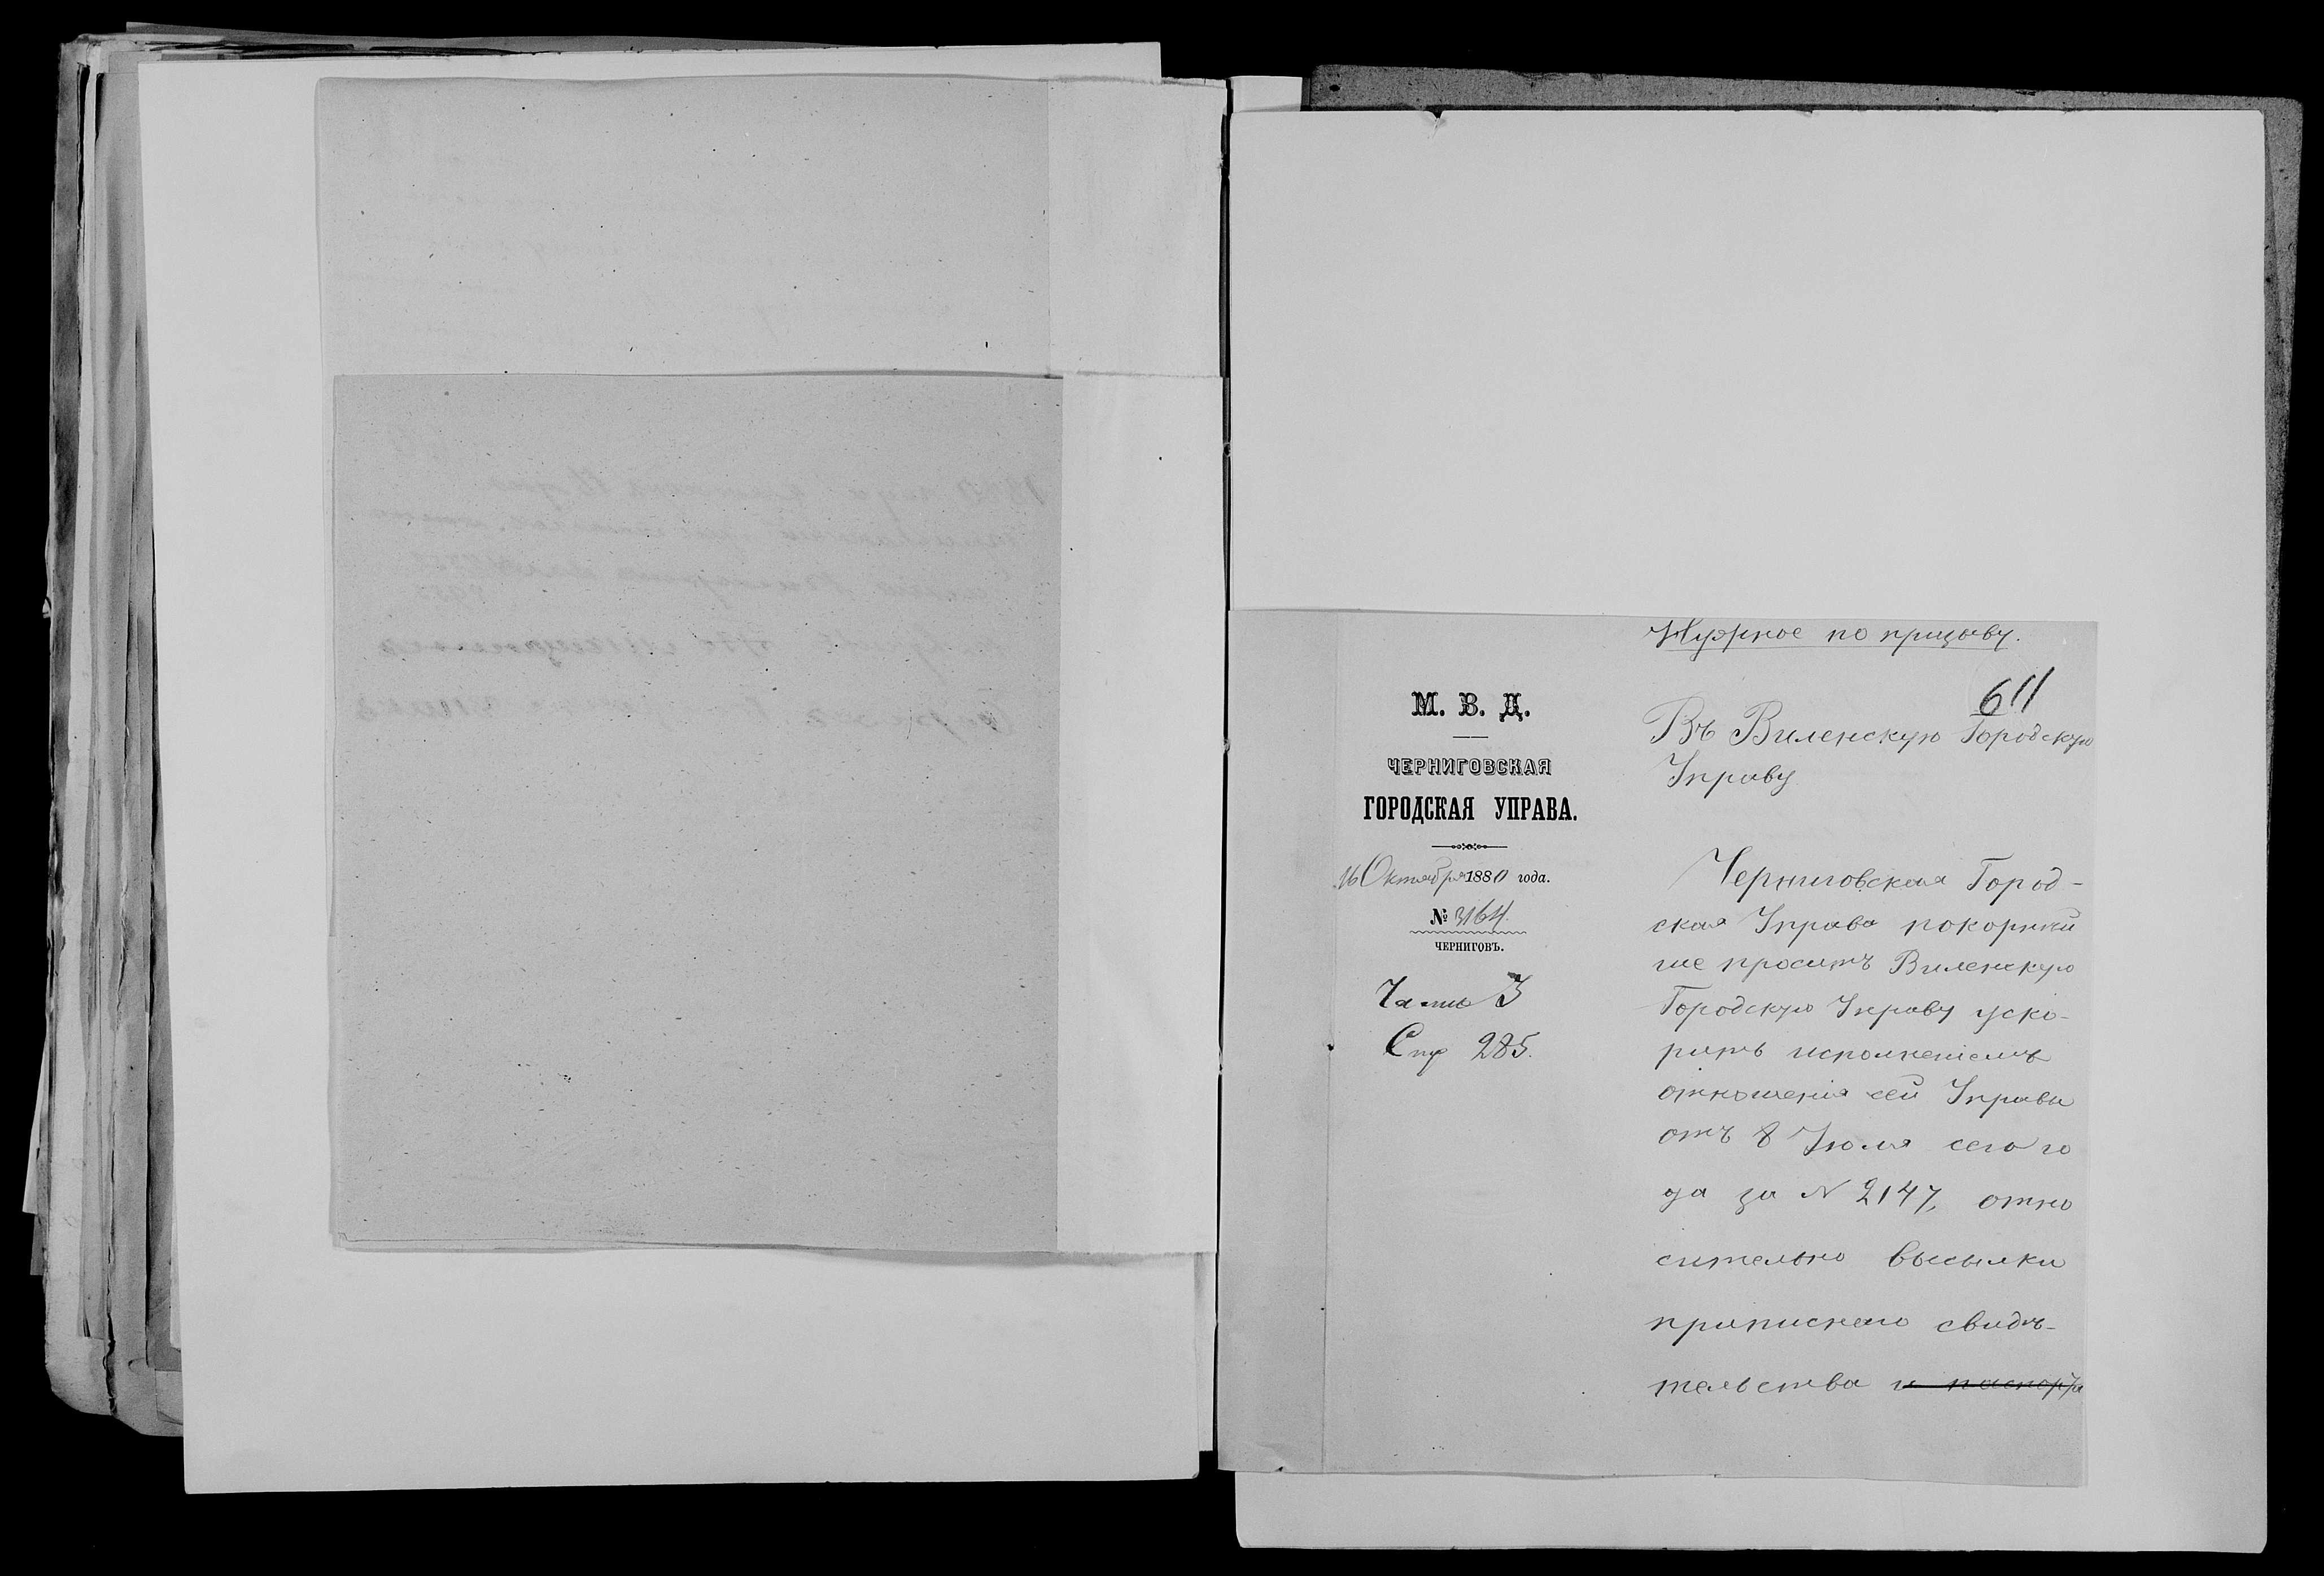 Нужное по призыву.
611
М. В. Д.
ЧЕРНИГОВСКАЯ
ГОРОДСКАЯ УПРАВА.
16 Октября 1880 года.
№ 3164.
ЧЕРНИГОВЪ.
Часть 3
Стр 285.
Въ Виленскую Городскую
Управу
Черниговская Город-
ская Управа покорнѣй
ше проситъ Виленскую
Городскую Управу уско-
рить исполненіемъ
отношенія сей Управы
отъ 8 Іюля сего го
да за N 2147, отно
сительно высылки
приписнаго свидѣ-
тельства и паспорта